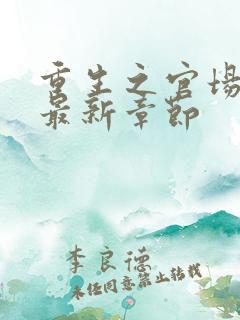 重生之官场
最新章节
李良德
未经同意禁止转载